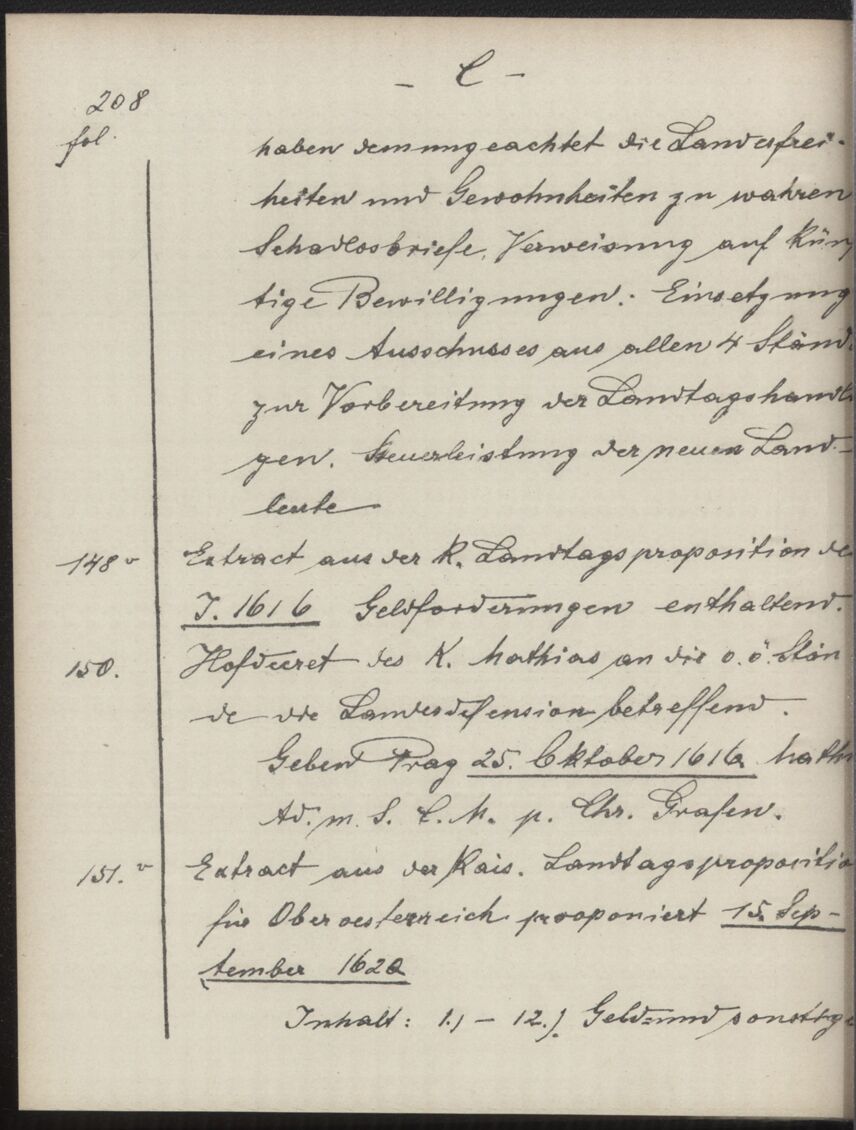 208
fol.
- C -
haben demungeachtet die Landesfrei-
heiten und Gewohnheiten zu wahren
Schadlosbriefe, Verweisung auf kün
tige Bewilligungen. Einsetzung
eines Ausschusses aus allen 4 Stän
zur Vorbereitung der Landtagshandl
gen. Steuerleistung der neuen Land-
leute
148v Extract aus der K. Landtagsproposition de
J. 1616 Geldforderungen enthaltend.
150. Hofdecret des K. Mathias an die o. ö. Stän
de die Landesdefension betreffend.
Geben Prag 25. Oktober 1616 Math
Ad. m. S. C. M. p. Chr. Grafen.
151.v Extract aus der Kais. Landtagspropositio
für Oberoesterreich proponiert 15. Sep-
tember 1620
Inhalt: 1.) - 12.) Geld= und sonstige